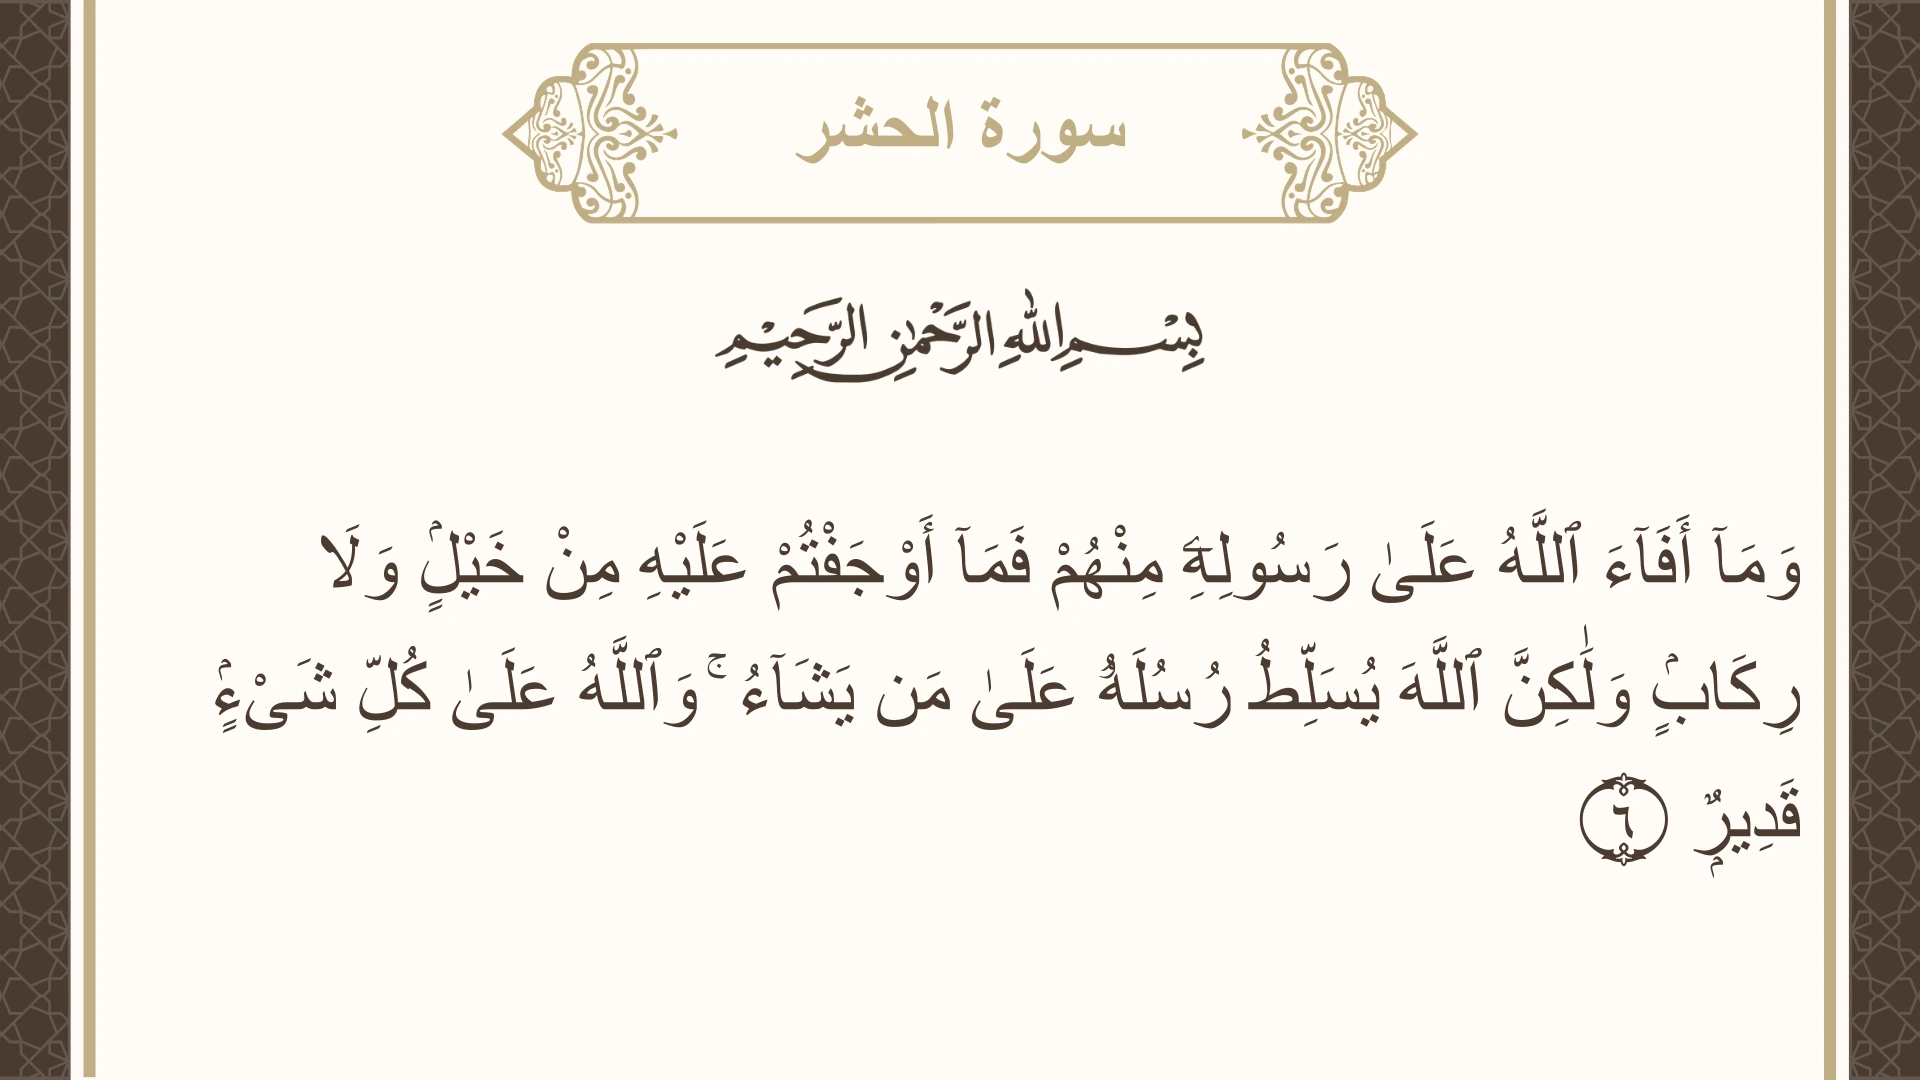 سورة الحشر
بِسْمِ اللهِ الرَّحْمٰنِ الرَّحِيْمِ
وَمَآ أَفَآءَ ٱللَّهُ عَلَىٰ رَسُولِهِۦٓ مِنْهُمْ فَمَآ أَوْجَفْتُمْ عَلَيْهِ مِنْ خَيْلٍۢ وَلَا
رِكَابٍۢ وَلَٰكِنَّ ٱللَّهَ يُسَلِّطُ رُسُلَهُۥ عَلَىٰ مَن يَشَآءُ ۚ وَٱللَّهُ عَلَىٰ كُلِّ شَىْءٍۢ
قَدِيرٌۭ ٦